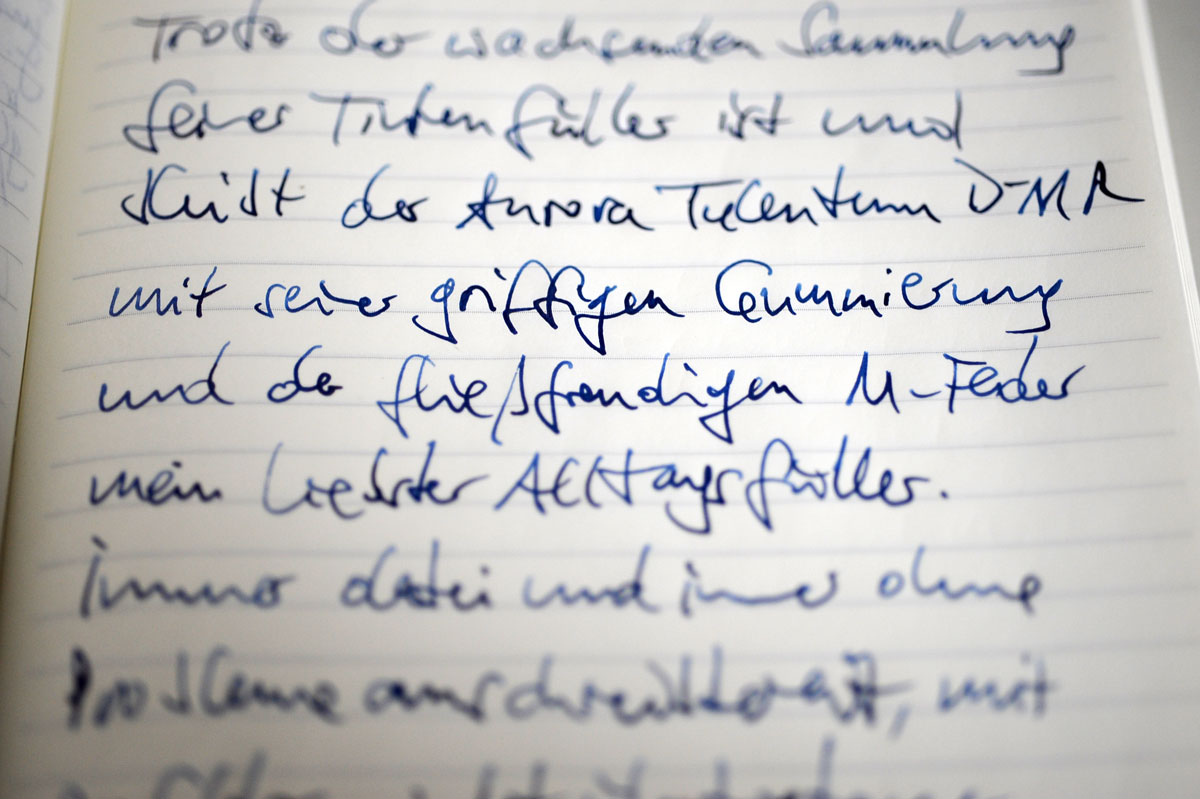 Trotz der wachsenden Sammlung
feiner Tintenfüller ist und
bleibt der Aurora Talentum D-MA
mit seiner griffigen Gummierung
und der fließfreudigen M-Feder
mein liebster Alltagsfüller.
Immer dabei und immer ohne
Probleme anschreibbereit, mit